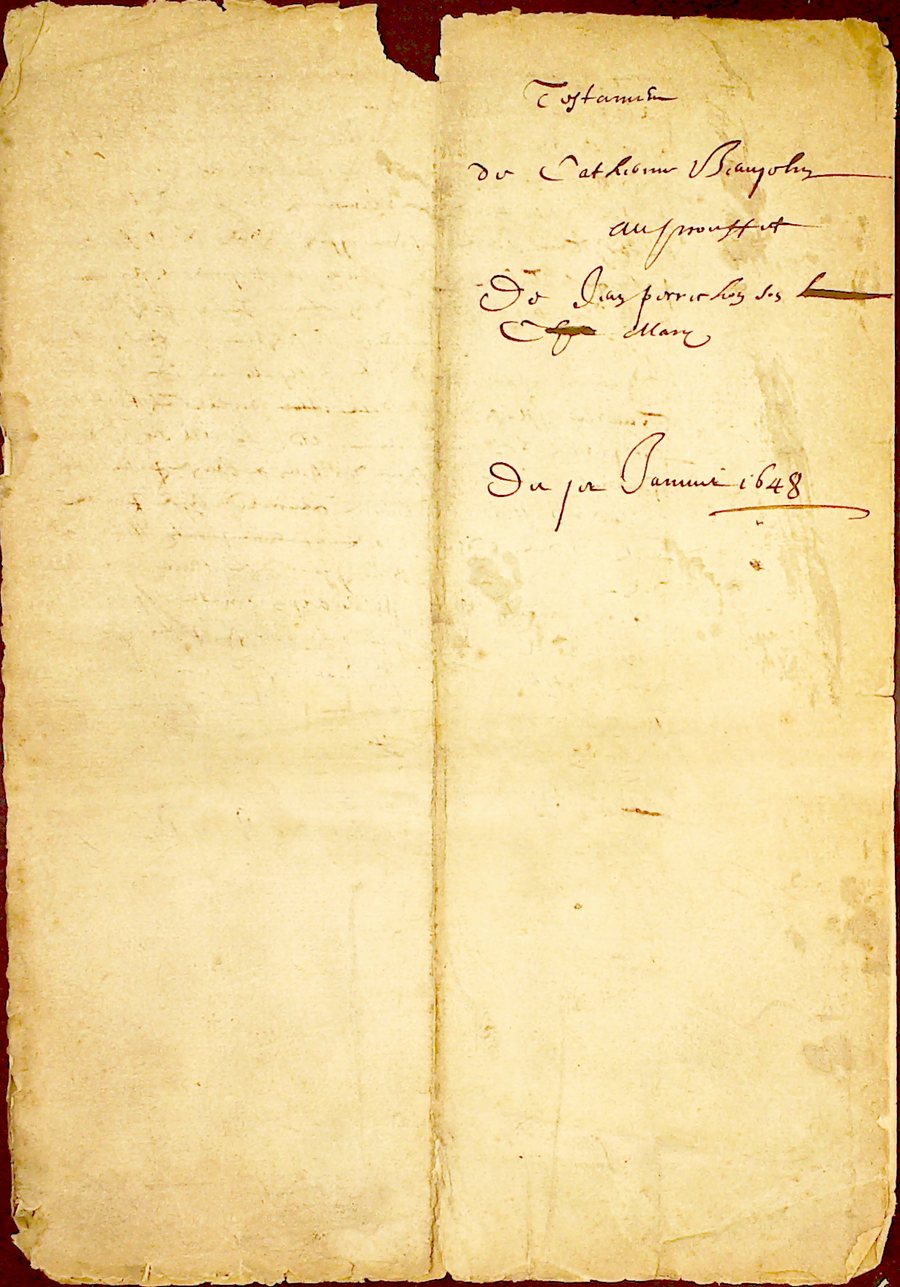 Testament
de Catherine Beaujolin
au prouffit
De Jean perrichon son
Mary
Du per Janvier 1648